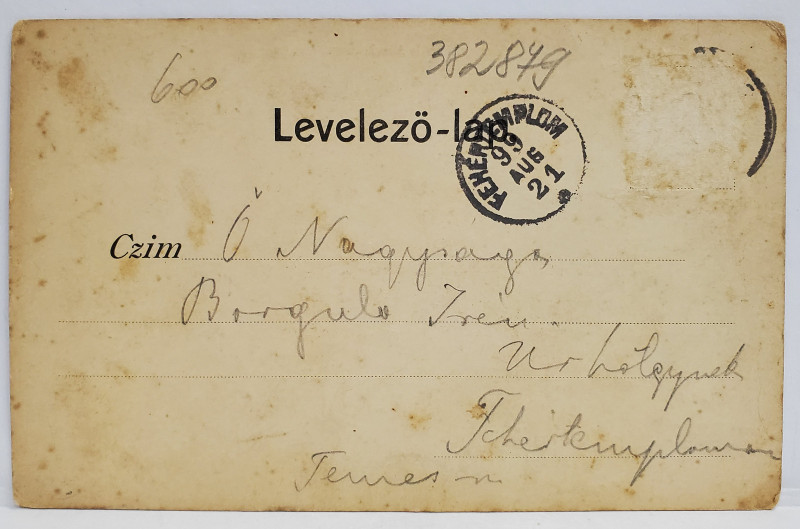 600
382879
Levelező-lap.
FEHÉRTEMPLOM
99 AUG 21
Czim Ő Nagysága
Irén
Úrhölgynek
Fehértemplomon
Temes-m